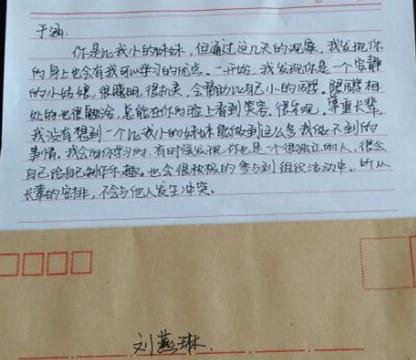 于涵:
你是比我小的妹妹,但通过这几天的观察,我发现你
的身上也会有我可以学习的优点。一开始,我发现你是一个安静
的小姑娘,很聪明,很打夫,会帮助比自己小的同学,跟同学相
处的也很融洽,总能在你的脸上看到笑容,很乐观,尊重长辈,
我没有想到一个比我小的妹妹能做到这么多我做不到的
事情。我会向你学习的,有时候发现你也是一个很独立的人,很会
自己给自己制作乐趣。也会很积极的参与到组织活动中。听从
长辈的安排,不会与他人发生冲突。
刘燕琳